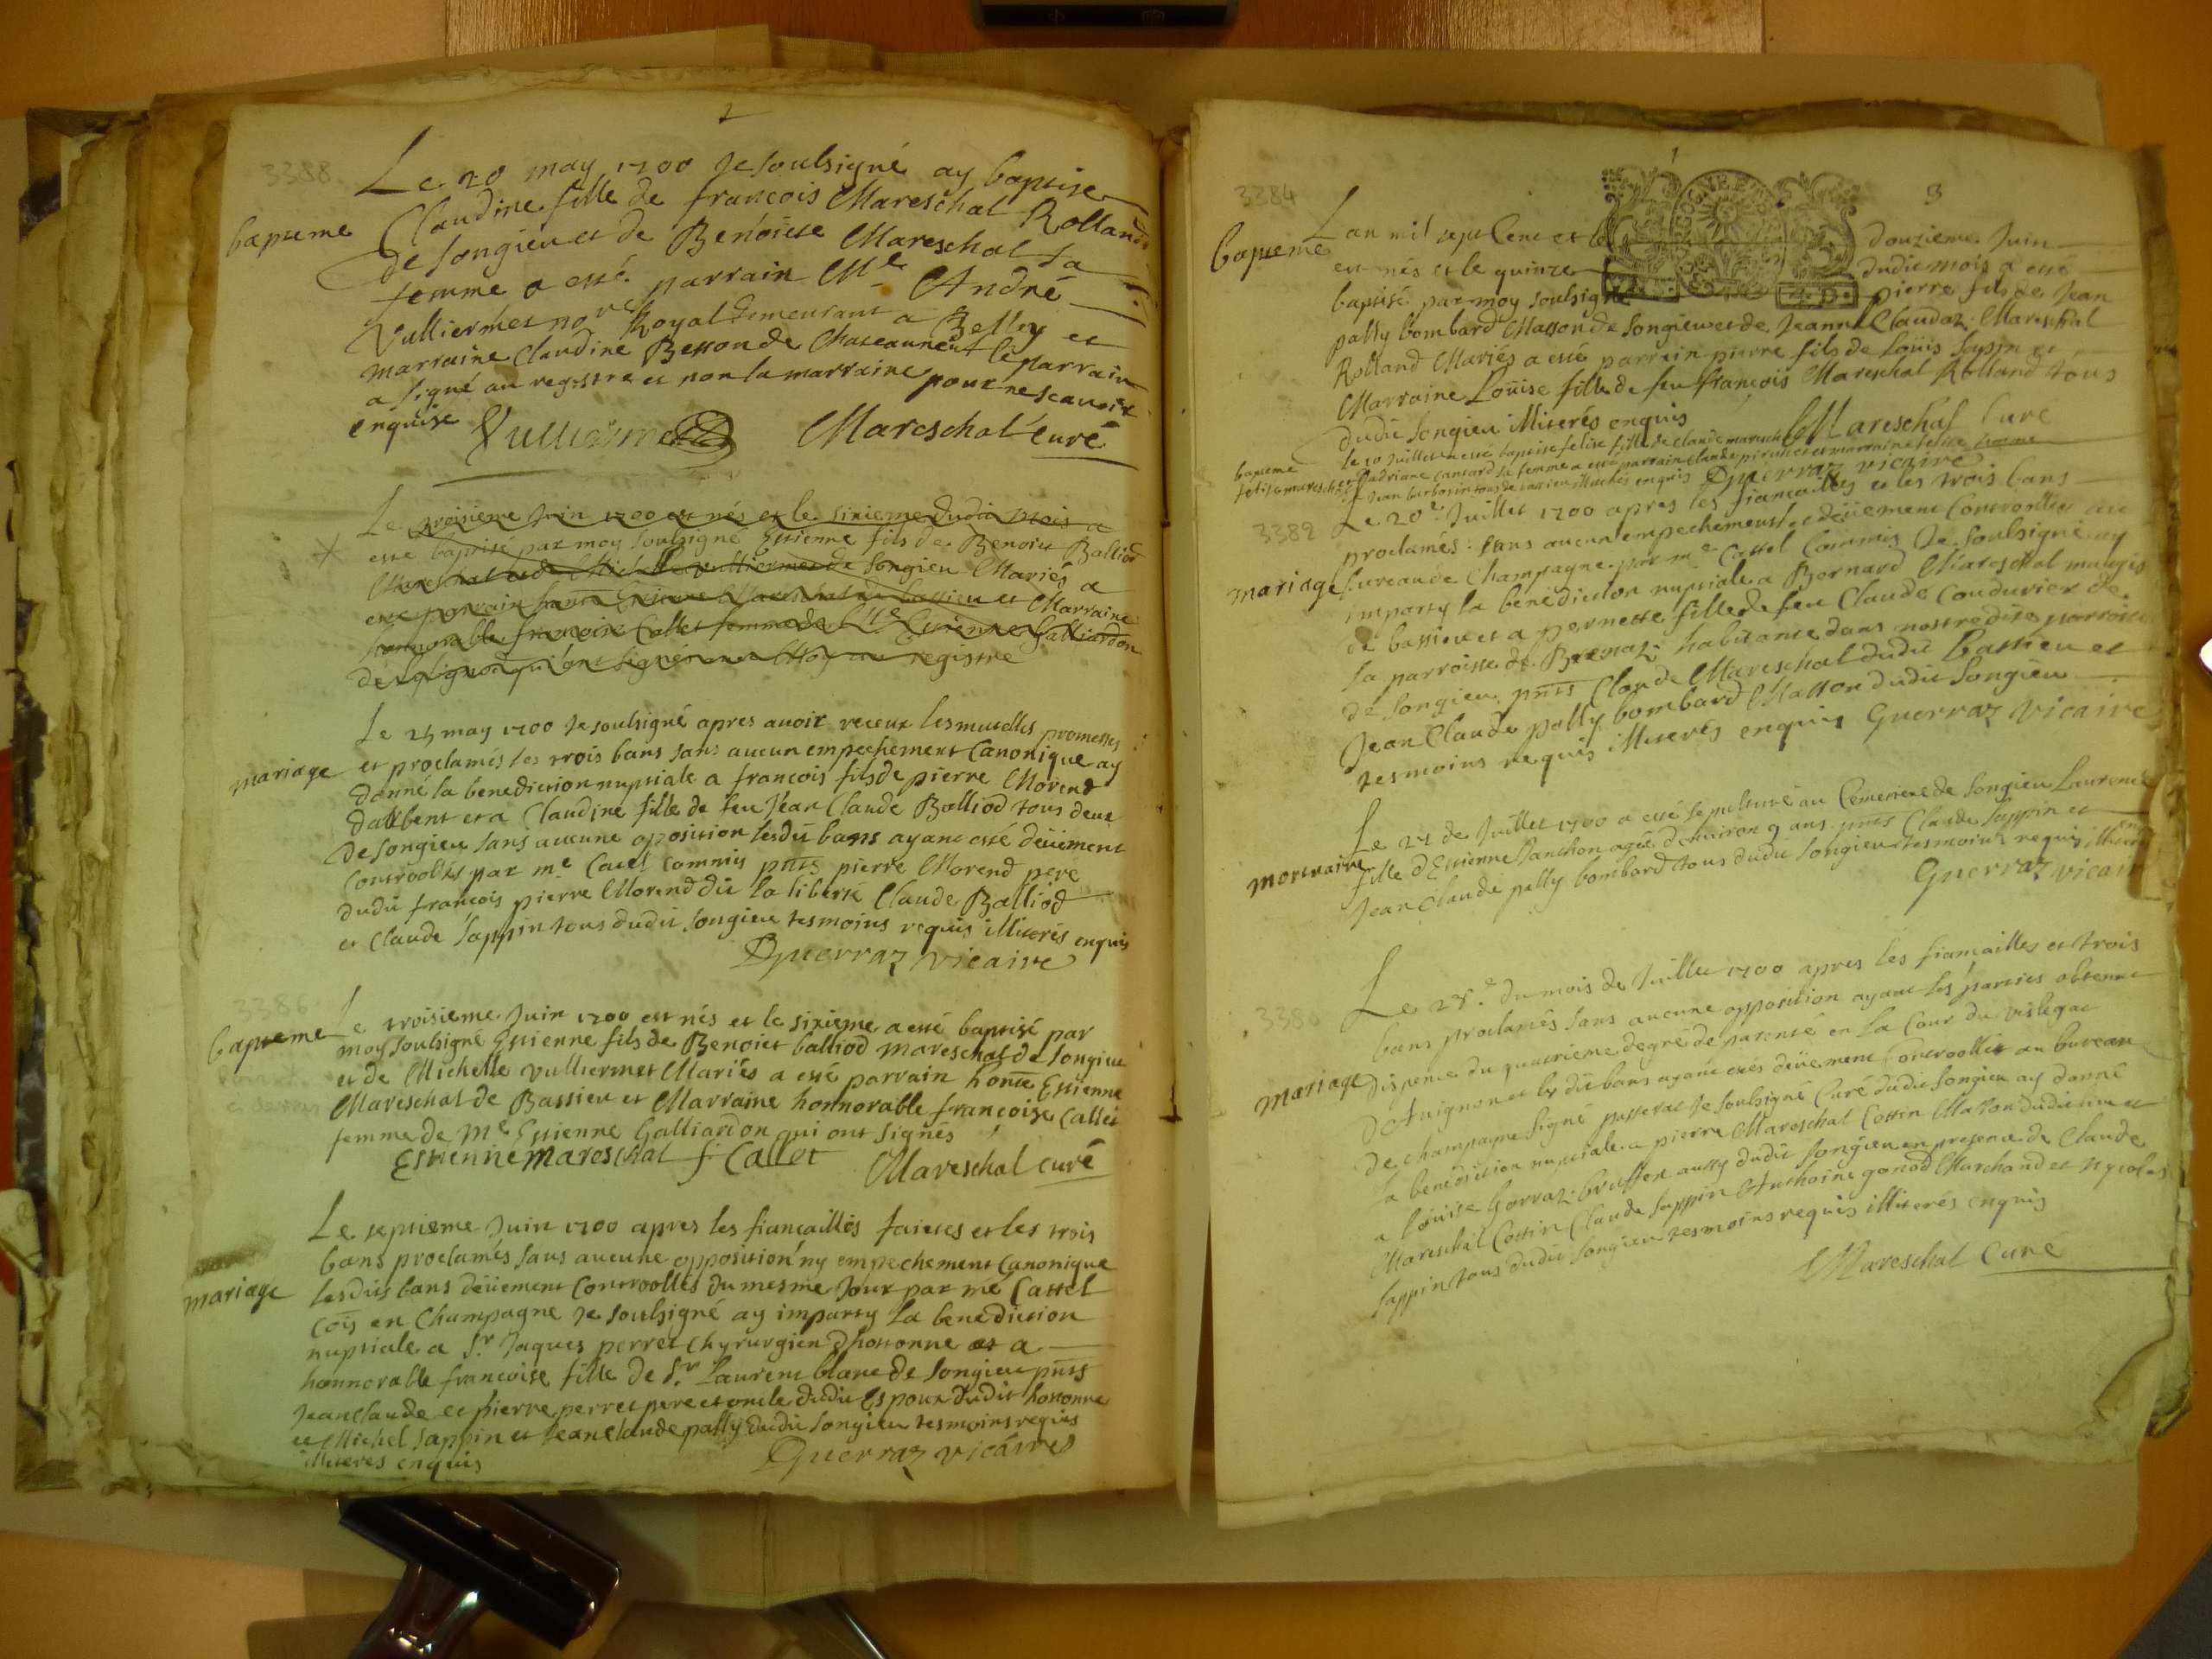 2
3388
Le 20 may 1700 Je soulsigné ay baptise
bapteme
Claudine fille de francois Mareschal Rolland
de Songieu et de Benoiste Mareschal sa
femme a esté parrain Me André
Vulliermet nore Royal demeurant a Belley et
marraine Claudine Besson de Chateauneuf le parrain
a signé au registre et non la marraine pour ne scavoir
enquise
Vulliermet
Mareschal Curé
Le troisieme Juin 1700 est nés et le sixieme dudit mois a
esté baptisé par moy soulsigné Estienne fils de Benoist Balliod
Mareschal et de Michelle Vulliermet de Songieu Mariés a
esté parrain honn Estienne Mareschal de bassieu et Marraine
honnorable francoise Callet femme de Me Estienne Galliardon
qui ont signés avec Moy au registre
Le 25 may 1700 Je soulsigné apres avoir receux les mutuelles promesses
mariage
et proclamés les trois bans sans aucun empechement Canonique ay
donné la benediction nuptiale a francois fils de pierre Morend
et a Claudine fille de feu Jean Claude Balliod tous deux
de Songieu sans aucune oposition lesdit bans ayant esté deüement
Controolles par me Castel commis pnts pierre Morend pere
dudit francois pierre Morend dit la liberté Claude Balliod
et Claude Sappin tous dudit Songieu tesmoins requis illiterés enquis
Guerraz vicaire
3386
bapteme
Le troisieme Juin 1700 est nés et le sixieme a esté baptisé par
moy soulsigné Estienne fils de Benoist balliod Mareschal de Songieu
et de Michelle Vulliermet Mariés a esté parrain honn Estienne
Mareschal de Bassieu et Marraine honnorable francoise Callet
femme de Me Estienne Galliardon qui ont signés
Estienne Mareschal f Callet
Mareschal curé
Le septieme Juin 1700 apres les fiancailles faictes et les trois
bans proclamés sans aucune opposition ny empechement Canonique
mariage
lesdits bans deüement Controolles du mesme Jour par me Castel
Cois en Champagne Je soulsigné ay imparty la benediction
nuptiale a Sr Jaques perret Chyrurgien d'hostonne et a
honnorable francoise fille de Sr Laurent blanc de Songieu pnts
Jean Claude et pierre perret pere et oncle dudit Espoux dudit hostonne
et Michel Sappin et Jean Claude pally dudit Songieu tesmoins requis
illiteres enquis
Guerraz vicaire
3
3384
Lan mil sept Cent et le douzieme Juin
bapteme
est nés et le quinze dudit mois a esté
baptisé par moy soulsigné pierre fils de Jean
pally bombard Masson de Songieu et de Jeanne Claudaz Mareschal
Rolland Mariés a esté parrain pierre fils de Loüis Sapin et
Marraine Loüise fille de feu francois Mareschal Rolland tous
dudit Songieu illiterés enquis
Mareschal Curé
bapteme
le 10 Juillet a esté baptisé felise fille de Claude mareschal
et d'adriane sa femme a esté parrain Claude et marraine felise femme
Guerraz vicaire
3382
Le 20e Juillet 1700 apres les fiancailles et les trois bans
proclamés sans aucun empechement et deüement Controolles au
mariage
bureau de Champagne par me Castel Commis Je soulsigné ay
imparty la benediction nuptiale a Bernard Mareschal
de bassieu et a pernette fille de feu Claude Coudurier de
la parroisse de Brenaz habitante dans nostredite parroisse
de Songieu pnts Claude Mareschal dudit bassieu et
Jean Claude pally bombard Masson dudit Songieu
tesmoins requis illiterés enquis Guerraz vicaire
Le 27 de Juillet 1700 a esté sepulturé au Cemetiere de Songieu Laurence
mortuaire
fille d'Estienne Janthon agée d'environ 9 ans pnts Claude Sappin et
Jean Claude pally bombard tous dudit Songieu tesmoins requis
Guerraz vicaire
3380
Le 28e du mois de Juillet 1700 apres les fiancailles et trois
bans proclamés sans aucune opposition ayant les parties obtenu
mariage
dispence du quatrieme degré de parenté en la Cour du vislegat
d'Avignon et les dit bans ayant estés deüement Controolles au bureau
de Champagne signé passerat Je soulsigné Curé dudit Songieu ay donné
la benediction nuptiale a pierre Mareschal Cottin Mason dudit lieu et
a loüise Gorraz aussy dudit Songieu en presence de Claude
Mareschal Cottin Claude Sappin Anthoine gonod Marchand et nycolas
Sappin tous dudit Songieu tesmoins requis illiterés enquis
Mareschal Curé